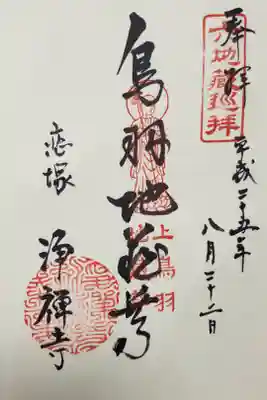 奉拝
六地蔵巡拝
平成二十五年
八月二十二日
鳥羽地蔵尊
上鳥羽
恋塚
浄禅寺